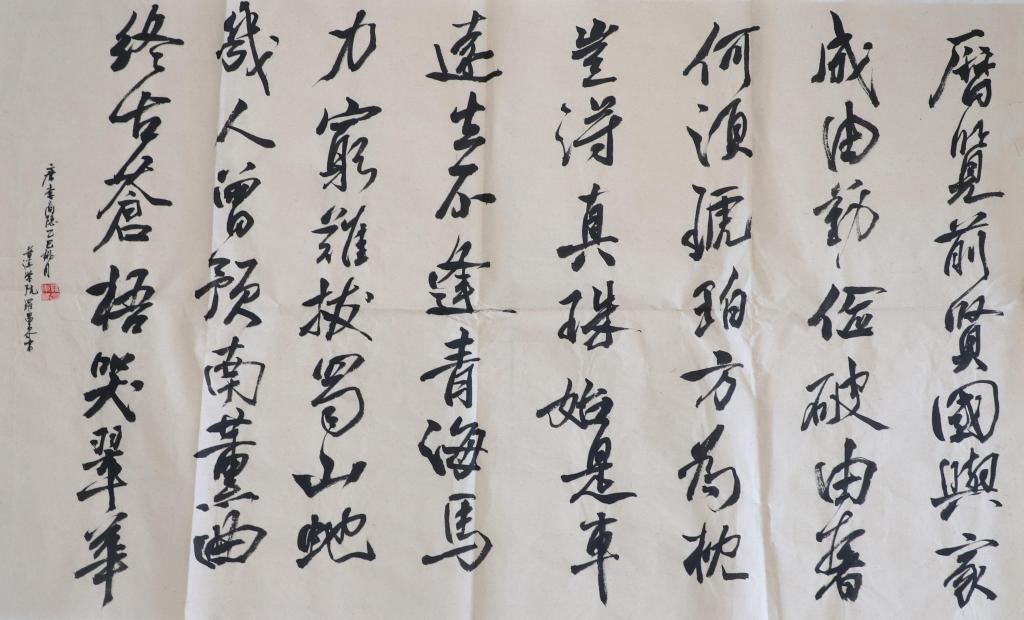 曆覽前賢國與家
成由勤俭破由奢
何須琥珀方為枕
豈得真珠始是車
遠去不逢青海馬
力窮難拔蜀山蛇
幾人曾預南薰曲
終古蒼梧哭翠華
唐李商隐乙巳秋月
學院